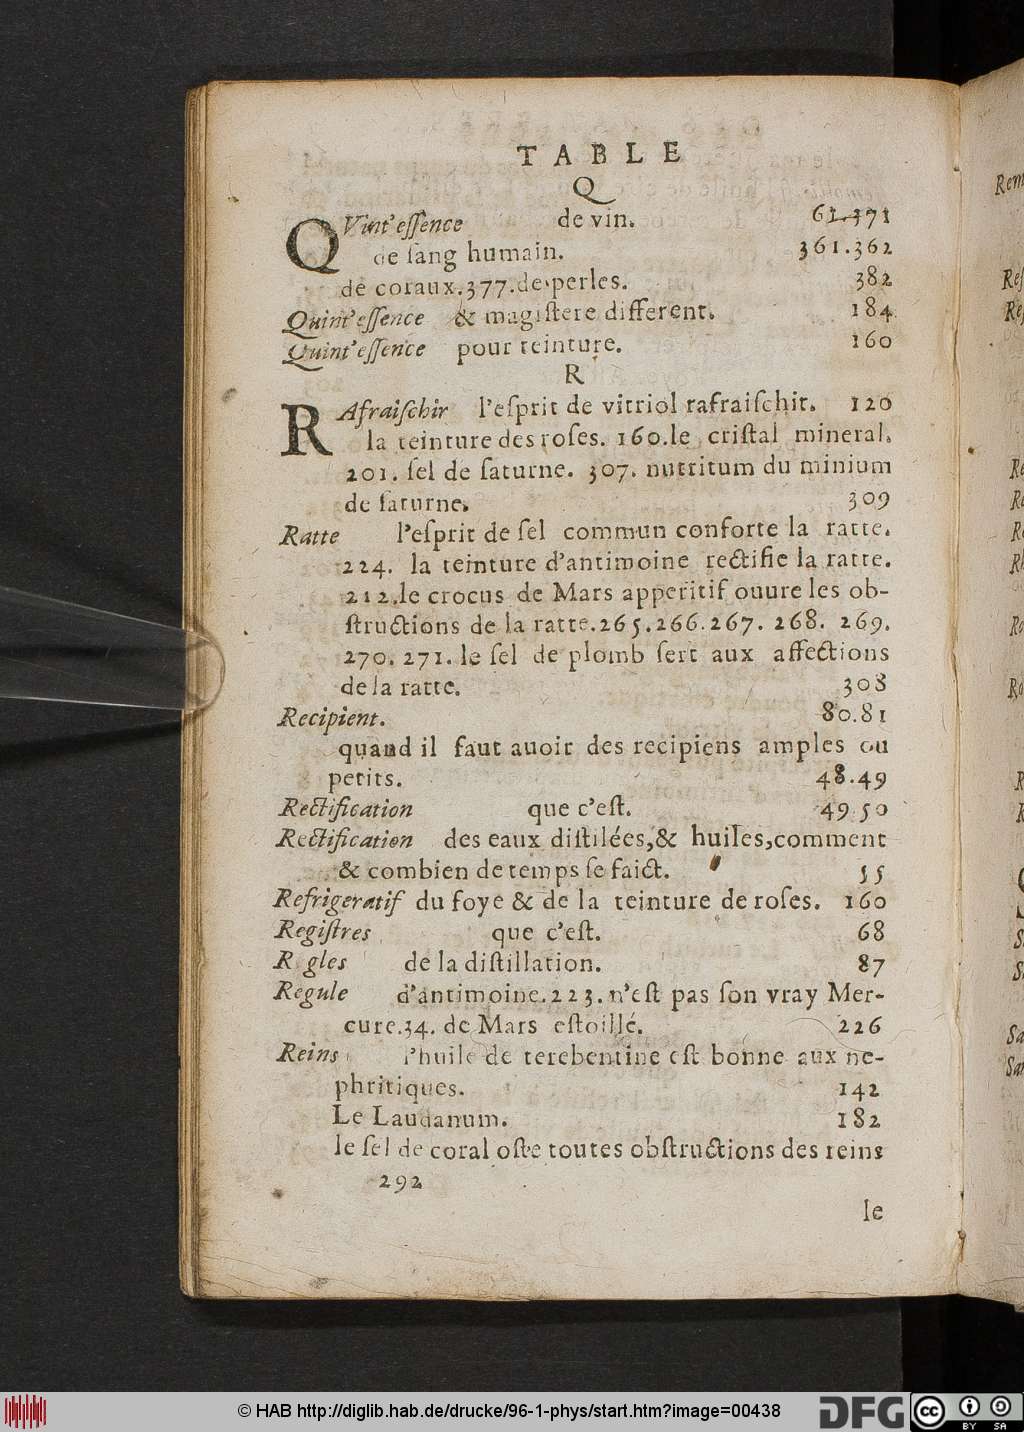 TABLE
Q
QVint'eſſence de vin. 61.371
de ſang humain. 361.362
de coraux.377.de perles. 382
Quint'eſſence & magiſtere different. 184
Quint'eſſence pour teinture. 160
R
RAfraiſchir l'eſprit de vitriol rafraiſchit. 120
la teinture des roſes. 160.le criſtal mineral.
201. ſel de ſaturne. 307. nutritum du minium
de ſaturne. 309
Ratte l'eſprit de ſel commun conforte la ratte.
224. la teinture d'antimoine rectifie la ratte.
212.le crocus de Mars apperitif ouure les ob-
ſtructions de la ratte.265.266.267. 268. 269.
270. 271. le ſel de plomb ſert aux affections
de la ratte. 308
Recipient. 80.81
quand il faut auoir des recipiens amples ou
petits. 48.49
Rectification que c'eſt. 49 50
Rectification des eaux diſtilées,& huiles,comment
& combien de temps ſe faict. 55
Refrigeratif du foye & de la teinture de roſes. 160
Regiſtres que c'eſt. 68
R gles de la diſtillation. 87
Regule d'antimoine.223.n'eſt pas ſon vray Mer-
cure.34. de Mars eſtoillé. 226
Reins l'huile de terebentine eſt bonne aux ne-
phritiques. 142
Le Laudanum. 182
le ſel de coral oſte toutes obſtructions des reins
292
le
Rem
Reſ
Re
Re
Re
Re
Rh
Ro
Ro
R
R
S
S
Sa
Sa
© HAB http://diglib.hab.de/drucke/96-1-phys/start.htm?image=00438
DFG
cc
BY SA